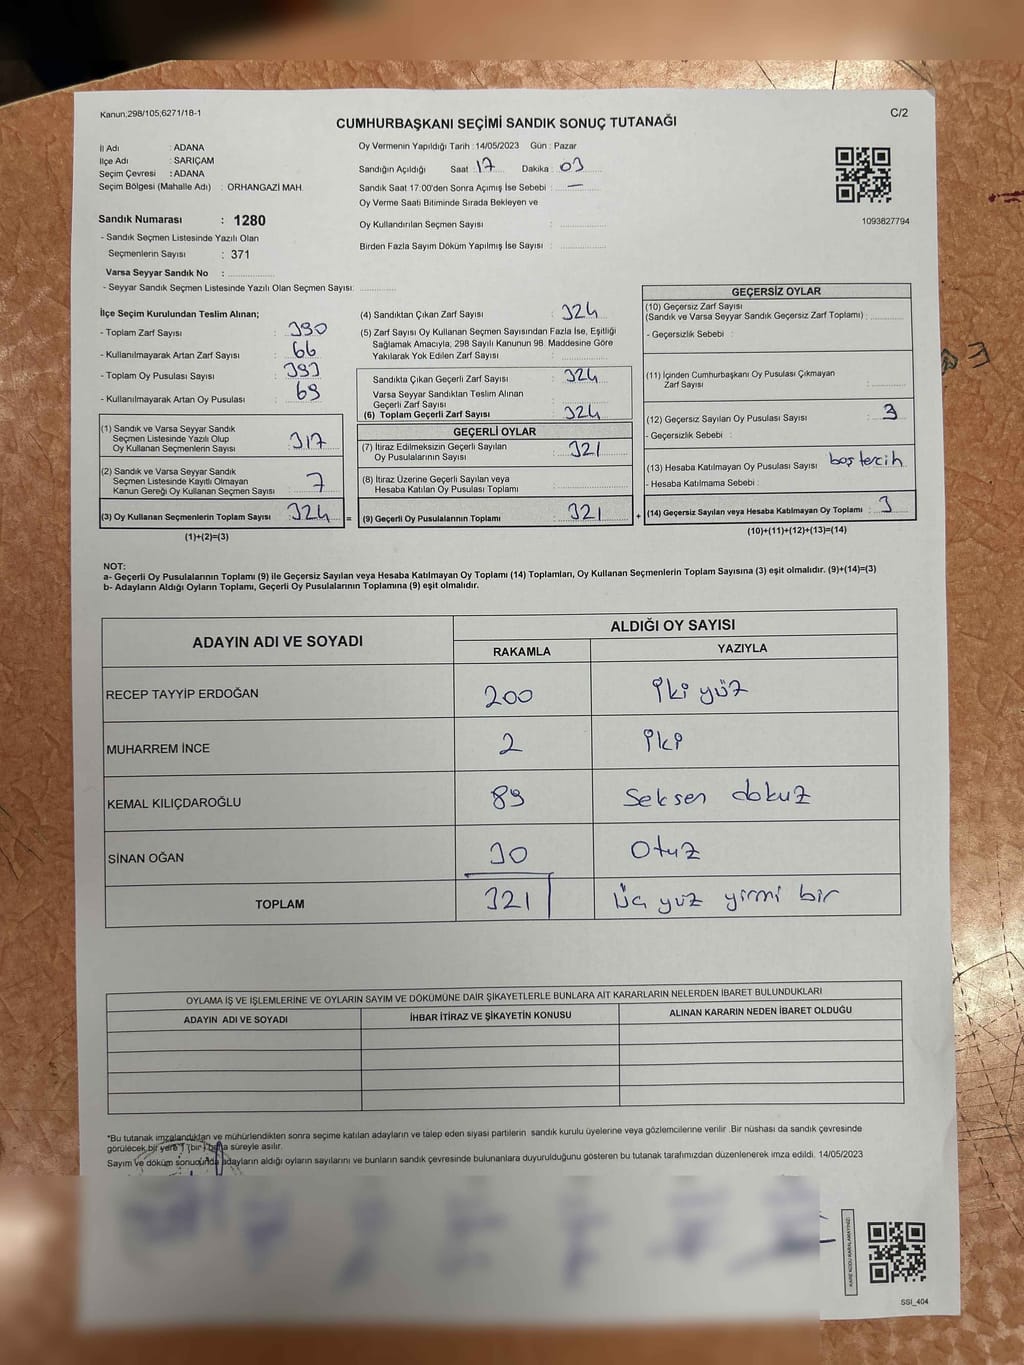 Kanun;298/105;6271/18-1
C/2
CUMHURBAŞKANI SEÇİMİ SANDIK SONUÇ TUTANAĞI
İl Adı : ADANA
İlçe Adı : SARIÇAM
Seçim Çevresi : ADANA
Seçim Bölgesi (Mahalle Adı) : ORHANGAZİ MAH.
Oy Vermenin Yapıldığı Tarih : 14/05/2023 Gün : Pazar
Sandığın Açıldığı Saat : 17 Dakika : 03
Sandık Saat 17:00'den Sonra Açımış İse Sebebi : —
Oy Verme Saati Bitiminde Sırada Bekleyen ve
Oy Kullandırılan Seçmen Sayısı :
Birden Fazla Sayım Döküm Yapılmış İse Sayısı :
1093827794
Sandık Numarası : 1280
- Sandık Seçmen Listesinde Yazılı Olan
Seçmenlerin Sayısı : 371
Varsa Seyyar Sandık No :
- Seyyar Sandık Seçmen Listesinde Yazılı Olan Seçmen Sayısı:
İlçe Seçim Kurulundan Teslim Alınan;
- Toplam Zarf Sayısı : 390
- Kullanılmayarak Artan Zarf Sayısı : 66
- Toplam Oy Pusulası Sayısı : 393
- Kullanılmayarak Artan Oy Pusulası : 69
(1) Sandık ve Varsa Seyyar Sandık
Seçmen Listesinde Yazılı Olup
Oy Kullanan Seçmenlerin Sayısı : 317
(2) Sandık ve Varsa Seyyar Sandık
Seçmen Listesinde Kayıtlı Olmayan
Kanun Gereği Oy Kullanan Seçmen Sayısı : 7
(3) Oy Kullanan Seçmenlerin Toplam Sayısı : 324 =
(1)+(2)=(3)
(4) Sandıktan Çıkan Zarf Sayısı : 324
(5) Zarf Sayısı Oy Kullanan Seçmen Sayısından Fazla İse, Eşitliği
Sağlamak Amacıyla, 298 Sayılı Kanunun 98. Maddesine Göre
Yakılarak Yok Edilen Zarf Sayısı :
Sandıkta Çıkan Geçerli Zarf Sayısı : 324
Varsa Seyyar Sandıktan Teslim Alınan
Geçerli Zarf Sayısı :
(6) Toplam Geçerli Zarf Sayısı : 324
GEÇERLİ OYLAR
(7) İtiraz Edilmeksizin Geçerli Sayılan
Oy Pusulalarının Sayısı : 321
(8) İtiraz Üzerine Geçerli Sayılan veya
Hesaba Katılan Oy Pusulası Toplamı :
(9) Geçerli Oy Pusulalarının Toplamı : 321 +
GEÇERSİZ OYLAR
(10) Geçersiz Zarf Sayısı
(Sandık ve Varsa Seyyar Sandık Geçersiz Zarf Toplamı) :
- Geçersizlik Sebebi :
(11) İçinden Cumhurbaşkanı Oy Pusulası Çıkmayan
Zarf Sayısı :
(12) Geçersiz Sayılan Oy Pusulası Sayısı : 3
- Geçersizlik Sebebi :
(13) Hesaba Katılmayan Oy Pusulası Sayısı : boş tercih
- Hesaba Katılmama Sebebi :
(14) Geçersiz Sayılan veya Hesaba Katılmayan Oy Toplamı : 3
(10)+(11)+(12)+(13)=(14)
NOT:
a- Geçerli Oy Pusulalarının Toplamı (9) ile Geçersiz Sayılan veya Hesaba Katılmayan Oy Toplamı (14) Toplamları, Oy Kullanan Seçmenlerin Toplam Sayısına (3) eşit olmalıdır. (9)+(14)=(3)
b- Adayların Aldığı Oyların Toplamı, Geçerli Oy Pusulalarının Toplamına (9) eşit olmalıdır.
ADAYIN ADI VE SOYADI
ALDIĞI OY SAYISI
RAKAMLA YAZIYLA
RECEP TAYYİP ERDOĞAN 200 iki yüz
MUHARREM İNCE 2 iki
KEMAL KILIÇDAROĞLU 89 Seksen dokuz
SİNAN OĞAN 30 Otuz
TOPLAM 321 Üç yüz yirmi bir
OYLAMA İŞ VE İŞLEMLERİNE VE OYLARIN SAYIM VE DÖKÜMÜNE DAİR ŞİKAYETLERLE BUNLARA AİT KARARLARIN NELERDEN İBARET BULUNDUKLARI
ADAYIN ADI VE SOYADI İHBAR İTİRAZ VE ŞİKAYETİN KONUSU ALINAN KARARIN NEDEN İBARET OLDUĞU
*Bu tutanak imzalandıktan ve mühürlendikten sonra seçime katılan adayların ve talep eden siyasi partilerin sandık kurulu üyelerine veya gözlemcilerine verilir .Bir nüshası da sandık çevresinde
görülecek bir yere 1 (bir) hafta süreyle asılır.
Sayım ve döküm sonucunda adayların aldığı oyların sayılarını ve bunların sandık çevresinde bulunanlara duyurulduğunu gösteren bu tutanak tarafımızdan düzenlenerek imza edildi. 14/05/2023
SSI_404